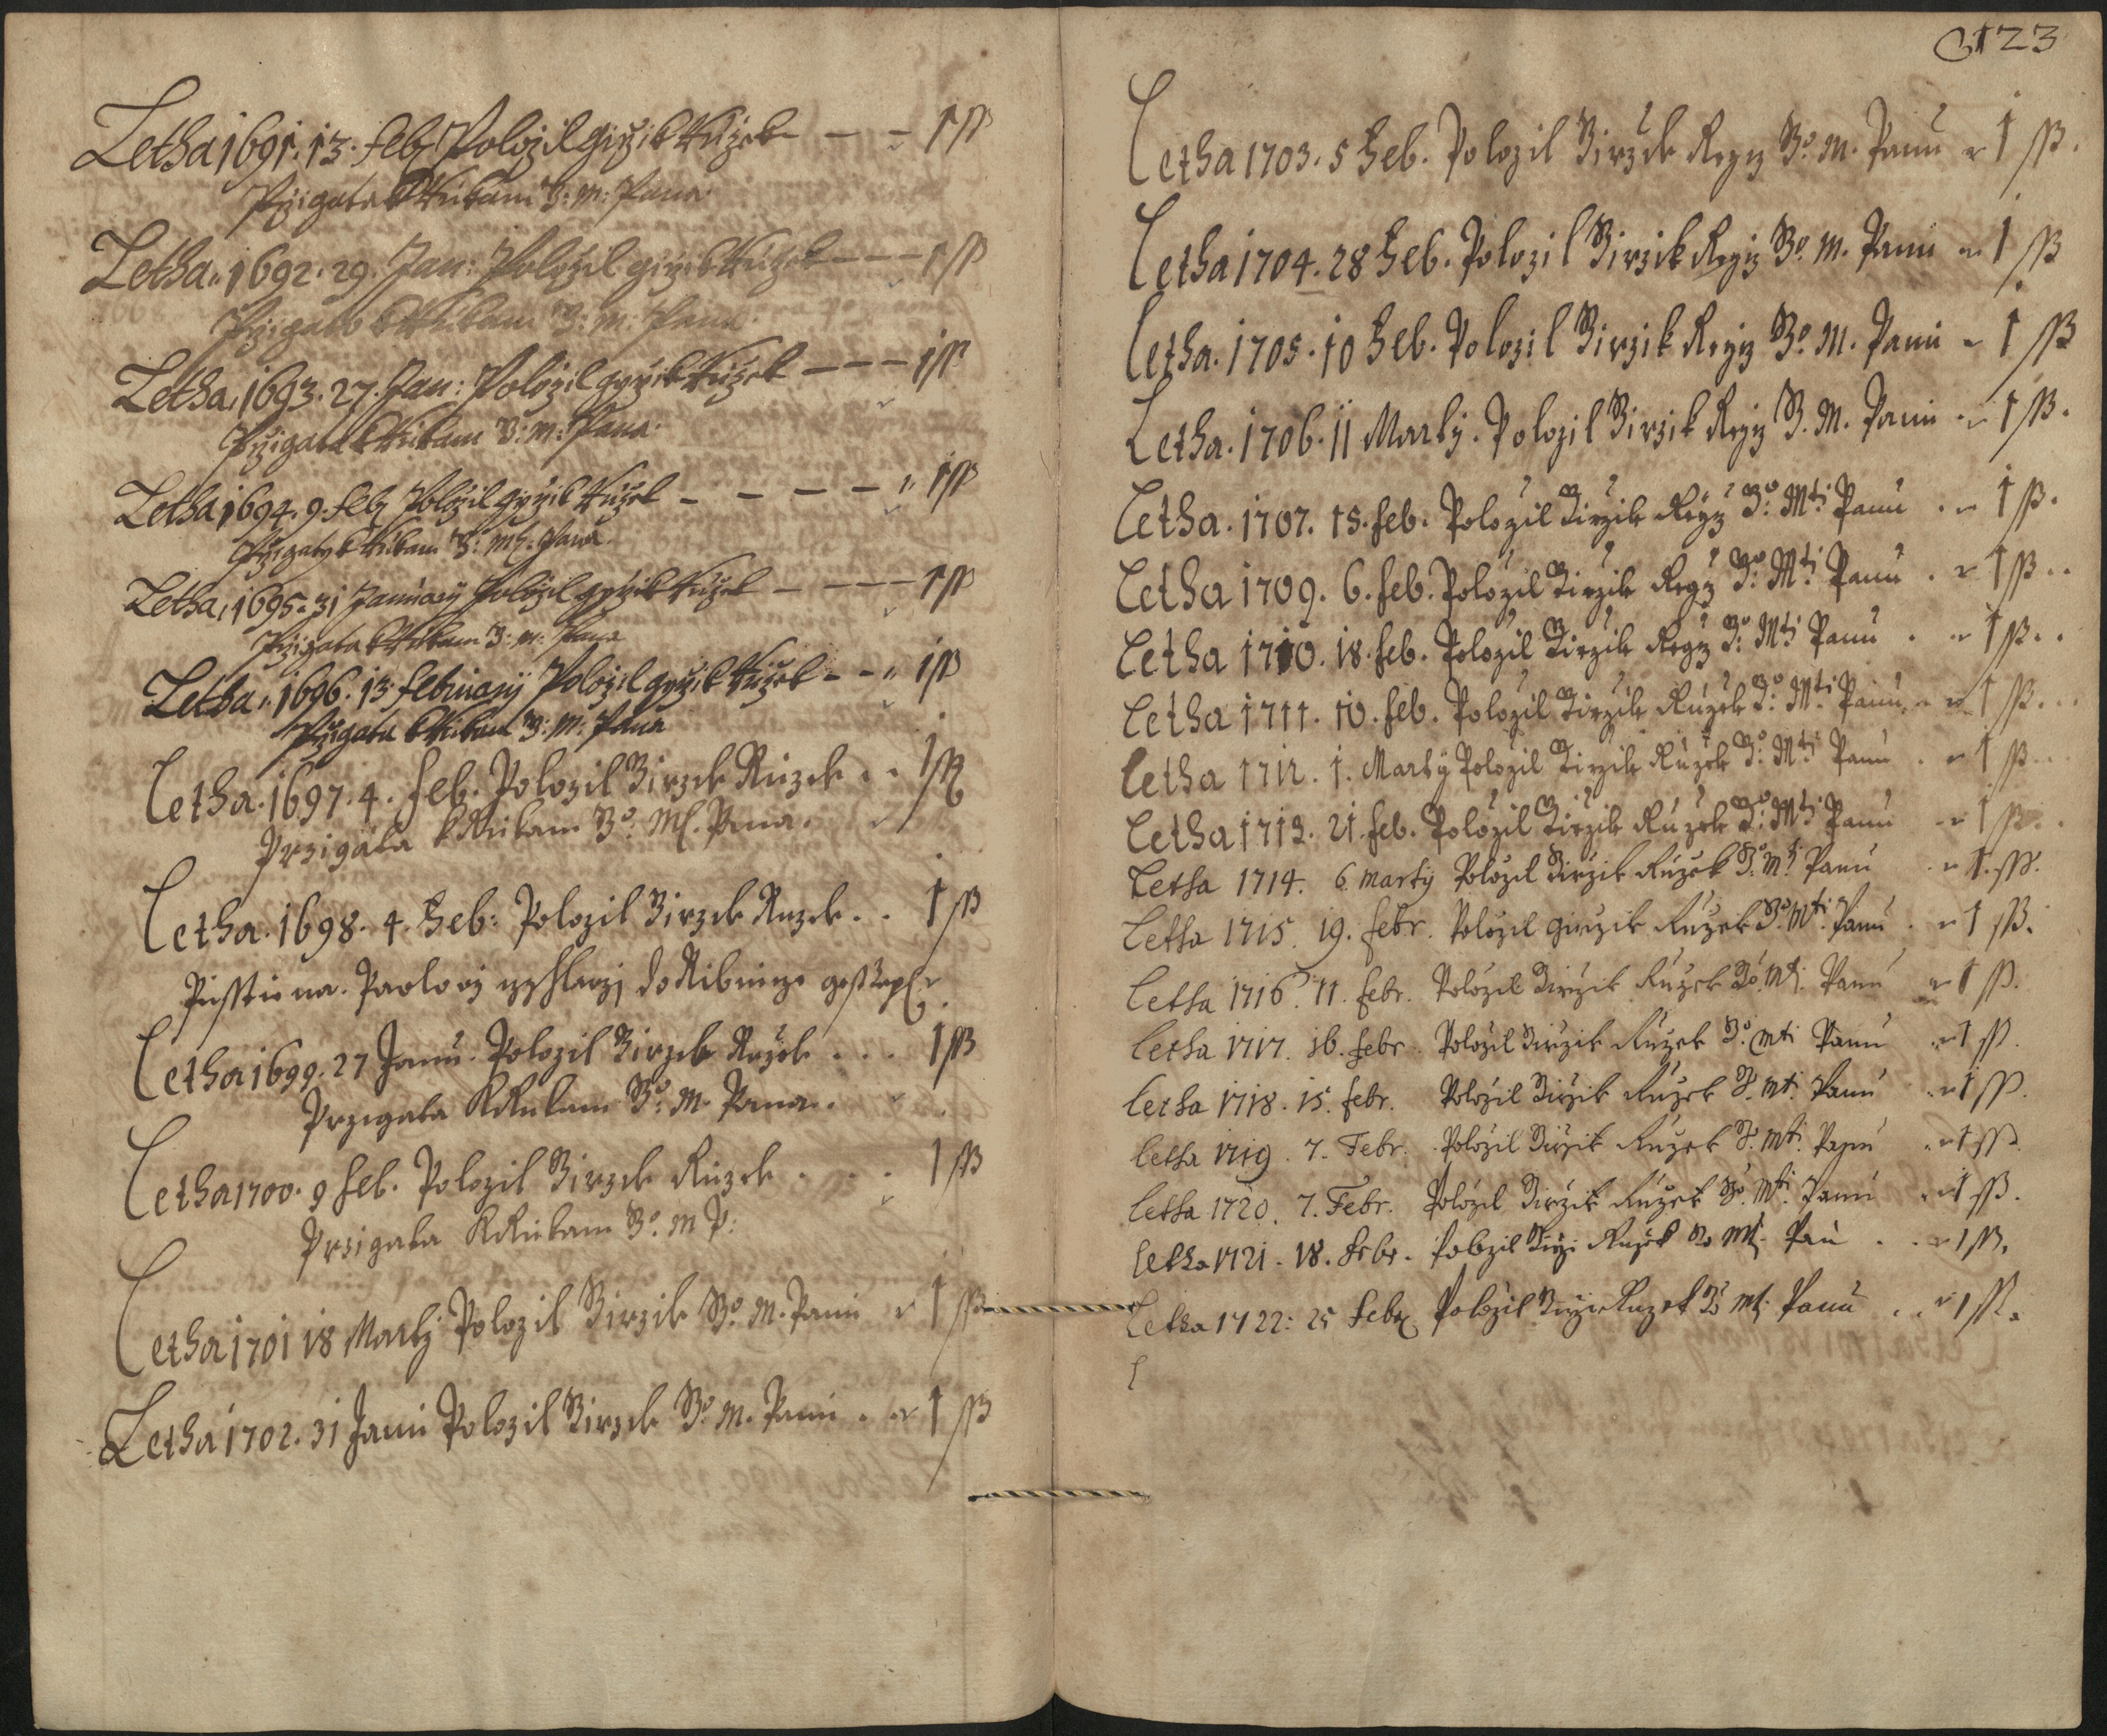 Letha 1691. 13. feb: Położil Girzik Rużek — — 1 ſſ
Przigata k Rukam J: M: Pana
Letha 1692. 29. Jan: Położil Girzik Rużek — — — 1 ſſ
Przigata k Rukam J: M: Pana
Letha 1693. 27. Jan: Położil Girzik Rużek — — — 1 ſſ
Przigata k Rukam J: M: Pana
Letha 1694. 9. feb: Położil Girzik Rużek — — — — 1 ſſ
Przigaty k Rukam J: Mti. Pana
Letha 1695. 31 January Położil Girzik Rużek — — — — 1 ſſ
Przigata k Rukam J: M: Pana
Letha 1696. 13 february Położil Girzik Rużek — — 1 ſſ
Przigata k Rukam J: M: Pana
Letha. 1697. 4. feb. Polozil Jirzik Ruzek . . 1 ſſ
Przigata k Rukam Jo. Mti. Pana.
Letha. 1698. 4. Feb: Polozil Jirzik Ruzek . . 1 ſß
Pusstiena. Pawlovi do Ribnicze
Letha 1699. 27 Janu. Polozil Jirzik Ruzek . . . 1 ſß
Przigata k Rukam Jo. M. Pana.
Letha 1700. 9 feb. Polozil Jirzik Ruzek . . . 1 ſß
Przigata k Rukam Jo. M P:
Letha 1701 18 Martj Polozil Jirzik Jo. M. Panu 1 ſß
Letha 1702. 31 Janu Polozil Jirzik Jo. M. Panu . 1 ſß
123
Letha 1703. 5 Feb. Polozil Jirzik Regz Jo. M. Panu 1 ſß.
Letha 1704. 28 Feb. Polozil Jirzik Regz Jo. M. Panu 1 ſß
Letha. 1705. 10 Feb. Polozil Jirzik Regz Jo. M. Panu 1 ſß
Letha. 1706. 11 Martÿ. Polozil Jirzik Regz J. M. Panu 1 ſß.
Letha. 1707. 15. feb. Polozil Jirzik Regz Jo: Mti Panu . 1 ß.
Letha 1709. 6. feb. Polozil Jirzik Regz Jo: Mti Panu . 1 ß..
Letha 1710. 18. feb. Polozil Jirzik Regz Jo: Mti Panu . 1 ß..
Letha 1711. 10. feb. Polozil Jirzik Ruzek Jo: Mti Panu 1 ß...
Letha 1712. 1. Martÿ Polozil Jirzik Ruzek Jo: Mti Panu . 1 ß...
Letha 1713. 21. feb. Polozil Jirzik Ruzek Jo: Mti Panu 1 ß..
Letha 1714. 6. Martÿ Polozil Jirzik Ruzek Jo: Mti Panu . 1. ſß.
Letha 1715. 19. febr. Polozil Girzik Ruzek Jo. Mti. Panu . 1 ſß.
Letha 1716. 11. febr. Polozil Jirzik Ruzek Jo. Mti. Panu 1 ſß.
Letha 1717. 16. febr. Polozil Jirzik Ruzek Jo: Mti Panu 1 ſß.
Letha 1718. 15. febr. Polozil Jirzik Ruzek J. Mti. Panu 1 ſß.
Letha 1719. 7. Febr. Polozil Jirzik Ruzek J. Mti. Panu 1 ſß
Letha 1720. 7. Febr. Polozil Jirzik Ruzek Jo. Mti. Panu 1 ſß.
Letha 1721. 18. Febr. Polozil Jirzi Ruzek Jo Mti. Panu . . 1 ſß.
Letha 1722: 25 Feb: Polozil Jirzi Ruzek Jo Mti. Panu . . 1 ſß.